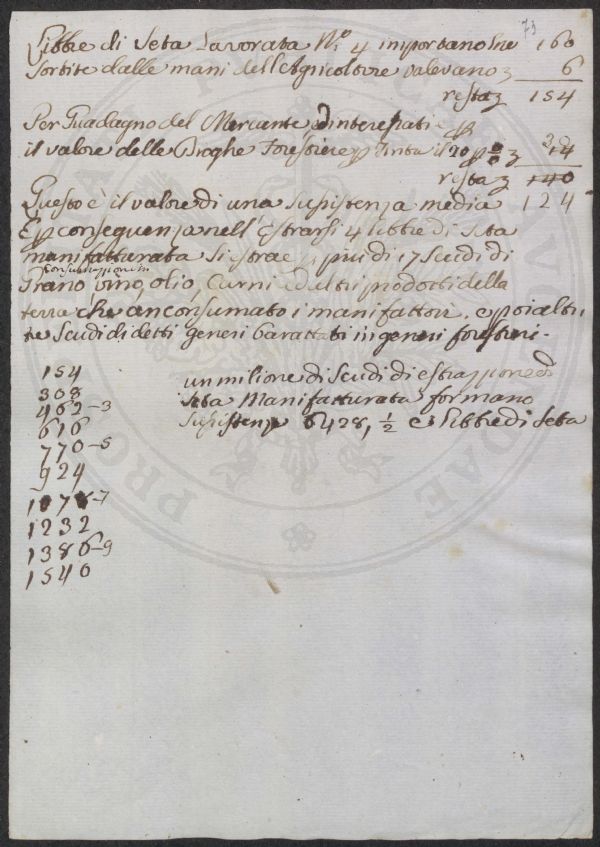 73
Libbre di Seta Lavorata N.° 4 importano Lire 160
sortite dalle mani dell'Agricoltore valevano 6
resta 154
Per Guadagno del Mercante ed interessati
il valore delle Droghe Forestiere Tinta il 20 14
resta 140
Questo è il valore di una Susistenza media 124
E conseguenza nell'Estrarsi 4 libbre di Seta
manifatturata si estrae più di 17 Scudi di
consunzione in
Grano, vino, olio, Carni ed altri prodotti della
terra che an consumato i manifattori, e poi altri
tre Scudi di detti generi barattati in generi forestieri.
154
308
462-3
616
770-5
924
1078-7
1232
1386-9
1540
un milione di Scudi di estrazzione di
Seta Manifatturata formano
Susistenze 6428, 1/2 e libbre di Seta